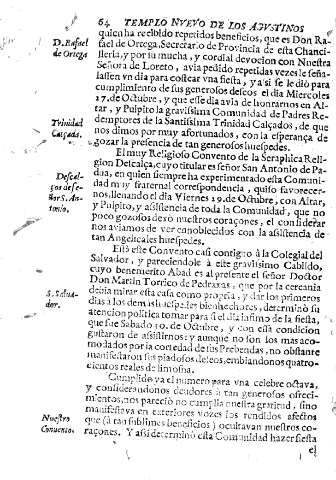 64 TEMPLO NUEVO DE LOS AGVSTINOS
D. Rafael de Ortega
quien ha recebido repetidos beneficios, que es Don Ra-
fael de Ortega, Secretario de Provincia de esta Chanci-
lleria, y por su mucha, y cordial devocion con Nuestra
Señora de Loreto, avia pedido repetidas vezes le seña-
lassen vn dia para costear vna fiesta, y assi se le diò para
cumplimiento de sus generosos deseos el dia Miercoles
17. de Octubre, y que esse dia avia de honrarnos en Al-
Trinidad Calçada.
tar, y Pulpito la gravissima Comunidad de Padres Re-
demptores de la Santissima Trinidad Calçados, de que
nos dimos por muy afortunados, con la esperança de
gozar la presencia de tan generosos huespedes.
El muy Religioso Convento de la Seraphica Reli-
gion Descalça, cuyo titular es señor San Antonio de Pa-
Descalços de señor S. Antonio,
dua, en quien siempre ha experimentado esta Comuni-
dad muy fraternal correspondencia, quiso favorecer-
nos, llenando el dia Viernes 19. de Octubre, con Altar,
y Pulpito, y assistencia de toda la Comunidad, que no
poco gozosos dexò nuestros coraçones, el considerar
nos aviamos de ver ennoblecidos con la assistencia de
tan Angelicales huespedes.
Està este Convento casi contiguo à la Colegial del
Salvador, y pareciendole à este gravissimo Cabildo,
cuyo benemerito Abad es al presente el señor Doctor
Don Martin Torrico de Pedraxas, que por la cercania
S. Salvador.
debia mirar esta casa como propria, y dàr los primeros
dias à los demàs huespedes bienhechores, determinò su
atencion politica tomar para sì el dia infimo de la fiesta,
que fue Sabado 20. de Octubre, y con esta condicion
gustaron de assistirnos: y aunque no son los mas aco-
modados por la cortedad de sus Prebendas, no obstante
manifestaron sus piadosos deseos, embiandonos quatro-
cientos reales de limosna.
Cumplido ya el numero para vna celebre octava,
y considerandonos deudores à tan generosos ofreci-
mientos, nos pareciò no cumplia nuestra gratitud, sino
manifestava en exteriores vozes los rendidos afectos
Nuestro Convento.
que (à tan sublimes beneficios) ocultavan nuestros co-
raçones. Y assi determinò esta Comunidad hazer fiesta
el